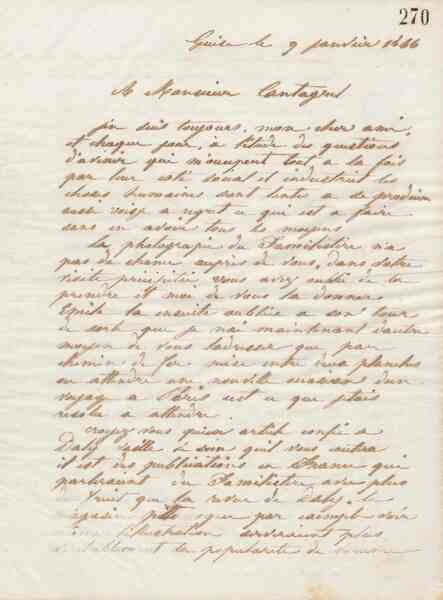 270
Guise le 9 janvier 1866
A Monsieur Cantagrel
j'en suis toujours, mon cher ami,
et chaque jour, à l'étude des questions
d'avenir qui m'occupent tout à la fois
par leur coté social et industriel les
choses humaines sont lentes a se produire
aussi vois je a regret ce qui est a faire
sans en avoir tous les moyens
La photograpie du Familistère n'a
pas de chance auprès de vous, dans votre
visite précipitée vous avez oublié de la
prendre et moi de vous la donner
Emile la ensuite oubliée a son tour
de sorte que je nai maintenant d'autre
moyen de vous ladresser que par
chemin de fer mise entre deux planches
ou attendre une nouvelle occasion d'un
voyage a Paris cest ce que j'étais
résolu a attendre.
croyez vous qu'un article confié a
Daly vaille le soin qu'il vous coutera
il est des publications en France qui
parleraient du Familistère avec plus
de fruit que la revue de Daly. le
magasin pittoresque par exemple voir
même l'illustration serviraient plus
de popularité de